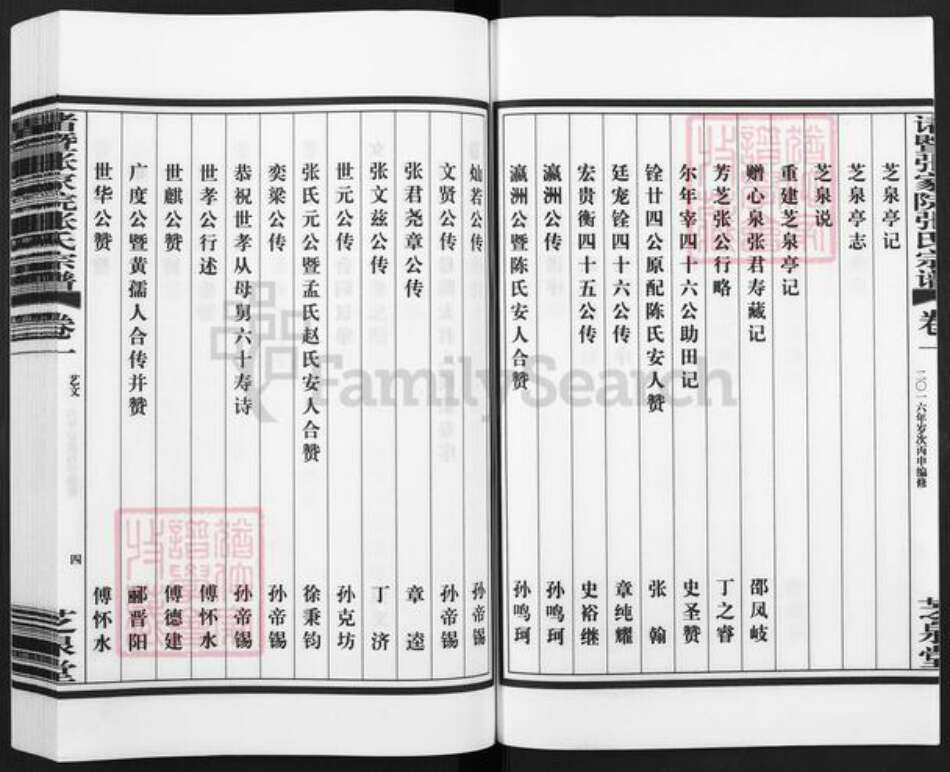 诸暨张家院张氏宗谱 卷一
二〇一六年岁次丙申编修
芝泉堂
芝泉亭记
芝泉亭志
芝泉说
重建芝泉亭记
赠心泉张君寿藏记 邵凤岐
芳芝张公行略 丁之睿
尔年宰四十六公助田记 史圣赞
铨廿四公原配陈氏安人赞 张翰
廷宠铨四十六公传 章纯耀
宏贵衡四十五公传 史裕继
瀛洲公传 孙鸣珂
瀛洲公暨陈氏安人合赞 孙鸣珂
灿若公传 孙帝锡
文贤公传 孙帝锡
张君尧章公传 章逵
张文兹公传 丁济
世元公传 孙克坊
张氏元公暨孟氏赵氏安人合赞 徐秉钧
奕梁公传 孙帝锡
恭祝世孝从母舅六十寿诗 孙帝锡
世孝公行述 傅怀水
世麒公赞 傅德建
广度公暨黄孺人合传并赞 郦晋阳
世华公赞 傅怀水
诸暨张家院张氏宗谱 卷一
艺文
四
芝泉堂
FamilySearch